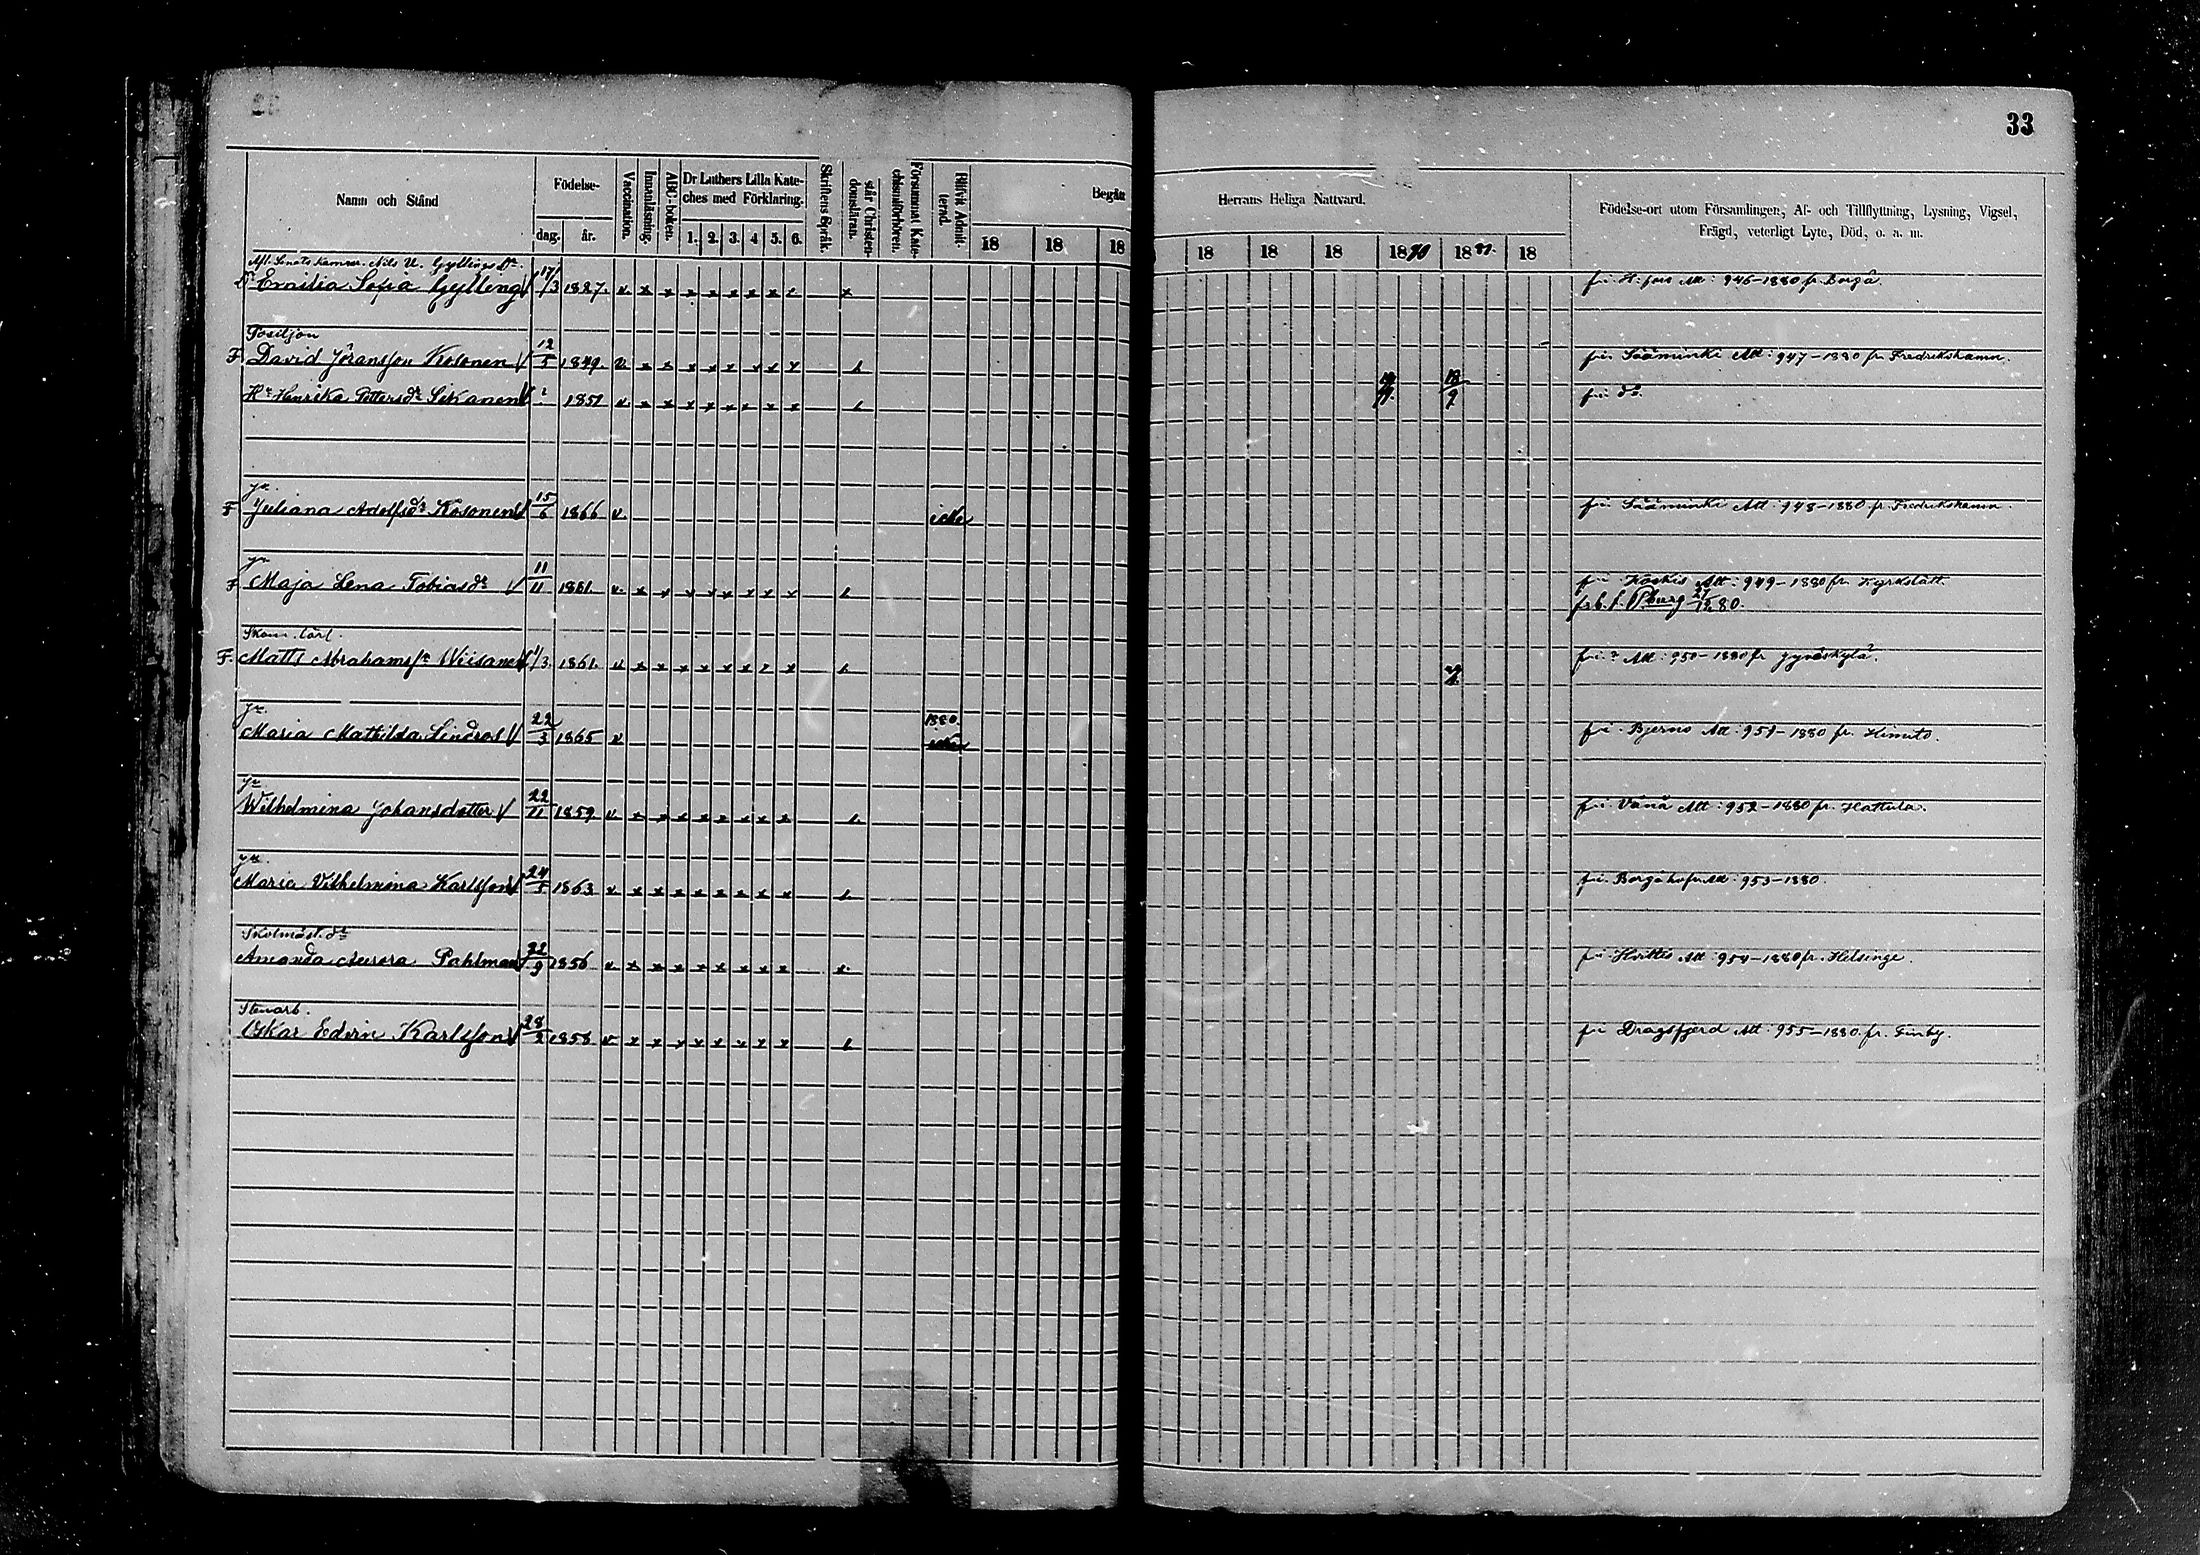 33
Namn och Stånd
Födelse-
dag. år.
Vaccination.
Innanläsning.
ABC-boken.
Dr Luthers Lilla Kate-
ches med Förklaring.
1. 2. 3. 4 5. 6.
Skriftens Språk.
står Christen-
domsläran.
Försummat Kate-
chismiförhören.
Blifvit Admit-
terad.
Begått
18 18 18
Herrans Heliga Nattvard.
18 18 18 1880 1881. 18
Födelse-ort utom Församlingen, Af- och Tillflyttning, Lysning, Vigsel,
Frägd, veterligt Lyte, Död, o. a. m.
Afl. Senats Kamrer. Nils U. Gyllings Dr.
Emilia Sofia Gylling 17/3 1827. v x x x x x x x x x f. i. H:fors Att: 946-1880 fr. Borgå.
Postiljon
F David Jöransson Kosonen 12/5 1849. v. x x x x x x x x f. i. Sääminki Att: 947-1880 fr. Fredrikshamn.
Hu Henrika Pettersdr Sikanen 1851 v x x x x x x x x 18/9 f. i. do.
Jr.
F Juliana Adolfsdr Kosonen 15/6 1866 v. icke f. i. Sääminki Att: 948-1880 fr. Fredrikshamn.
Jr
F Maja Lena Tobiasdr 11/11 1861. v. x x x x x x x x f. i. Koskis Att: 949-1880 fr. Kyrkslätt.
Pburg 80.
Skom. lärl.
F. Matts Abrahamssn Weisanen 1/3. 1861. v x x x x x x x x f. i. ? Att: 950-1880 fr Jyväskylä.
Jr.
Maria Mathilda Lindros 22/3 1865 v 1880. icke f. i. Bjerno Att: 951-1880 fr. Kimito.
Jr
Wilhelmina Johansdotter 22/11 1859 v. x x x x x x x x f. i. Vånå Att: 952-1880 fr. Hattula.
Jr.
Maria Vilhelmina Karlsson 24/5 1863 v x x x x x x x x f. i. Borgå Att: 953-1880.
Skolmäst. dr
Amanda Aurora Pahlman 22/9 1856 v. x x x x x x x x x. f. i. Hvittis Att: 954-1880 fr. Helsinge.
Stenarb.
Oskar Edvin Karlsson 28/2 1858 v x x x x x x x x f. i Dragsfjerd Att: 955-1880. fr. Finby.